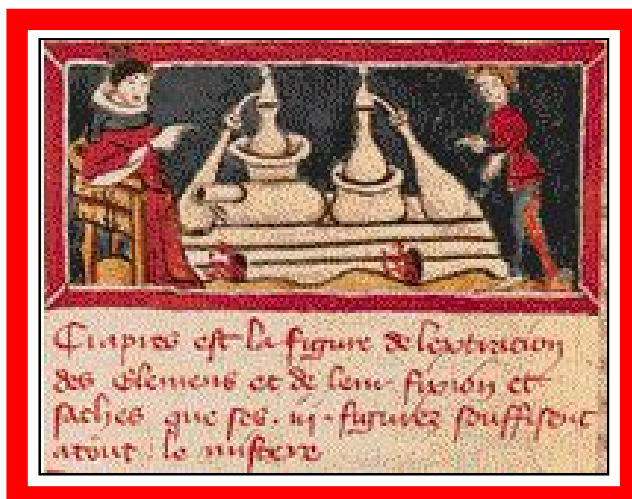 Ciapres est la figure de lextracion
des elemens et de leur fixion et
saches que ses .iii. figures souffisent
atout le mistere